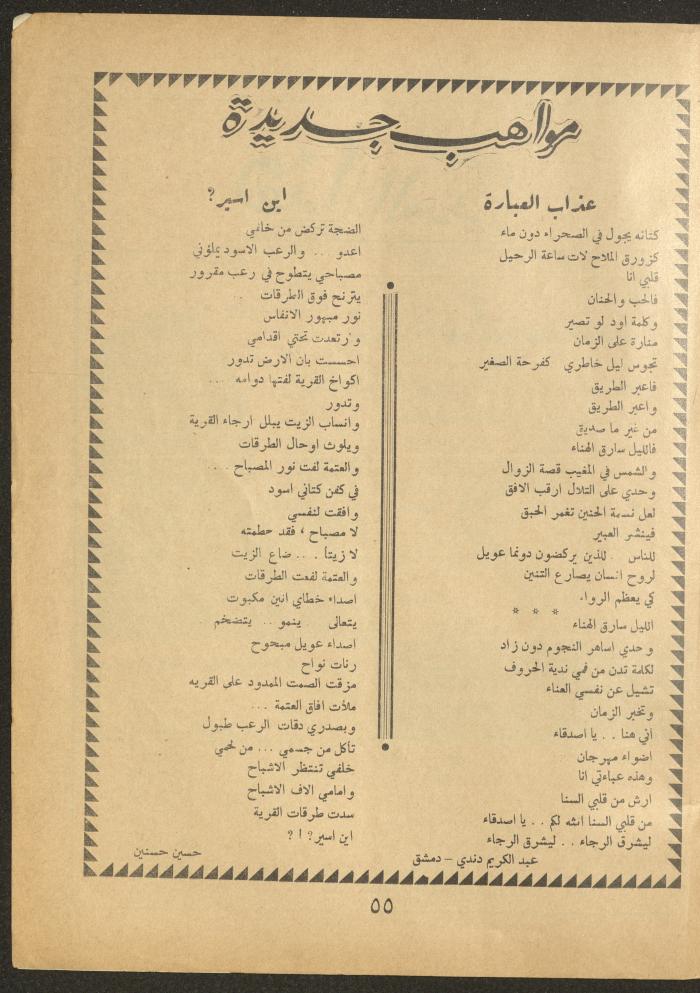 مواهب جديدة
عذاب العبارة
كتائه يجول في الصحراء دون ماء
كزورق الملاح لات ساعة الرحيل
قلبي انا
فالحب والحنان
وكلمة اود لو تصير
منارة على الزمان
تجوس ليل خاطري كفرحة الصغير
فاعبر الطريق
واعبر الطريق
من غير ما صديق
فالليل سارق الهناء
والشمس في المغيب قصة الزوال
وحدي على التلال ارقب الافق
لعل نسمة الحنين تغمر الحبق
فينشر العبير
للناس . للذين يركضون دونما عويل
لروح انسان يصارع التنين
كي يعظم الرواء
* * *
الليل سارق الهناء
وحدي اساهر النجوم دون زاد
لكلمة تدن من فمي ندية الحروف
تشيل عن نفسي العناء
وتخبر الزمان
أني هنا . . يا اصدقاء
اضواء مهرجان
وهذه عباءتي انا
ارش من قلبي السنا
من قلبي السنا انثه لكم . . يا اصدقاء
ليشرق الرجاء . . ليشرق الرجاء
عبد الكريم دندي – دمشق
اين اسير؟
الضجة تركض من خلفي
اعدو .. والرعب الاسود يملؤني
مصباحي يتطوح في رعب مقرور
يترنح فوق الطرقات .
نور مبهور الانفاس
وارتعدت تحتي اقدامي
احسست بان الارض تدور
اكواخ القرية لفتها دوامه ...
وتدور
وانساب الزيت يبلل ارجاء القرية
ويلوث اوحال الطرقات
والعتمة لفت نور المصباح ...
في كفن كتاني اسود
وافقت لنفسي
لا مصباح ، فقد حطمته
لا زيتاً . . . ضاع الزيت
والعتمة لفعت الطرقات
اصداء خطاي انين مكبوت
يتعالى ينمو .. يتضخم .
اصداء عويل مبحوح
رنات نواح
مزقت الصمت الممدود على القريه
ملأت افاق العتمة ...
وبصدري دقات الرعب طبول
تأكل من جسمي ... من لحمي
خلفي تنتظر الاشباح
وامامي الاف الاشباح
سدت طرقات القرية
اين اسير؟ ! ؟
حسين حسنين
٥٥